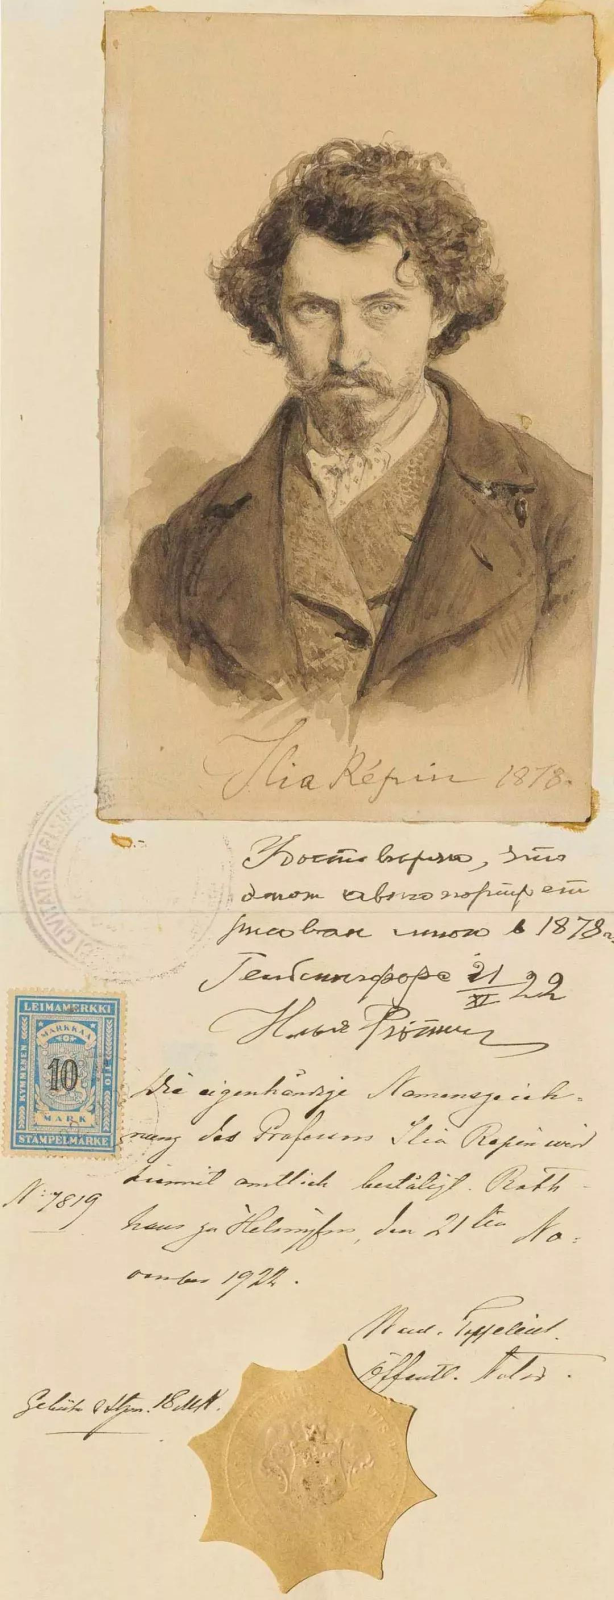 Ilia Répin 1878.
Удостоверяю, что
этот автопортрет
рисован мною в 1878 г.
Гельсингфорс 21/XI 22
Илья Репин
CIVITATIS HELSIN
LEIMAMERKKI
KYMMENEN
TIO
MARKKAA
10
MARK
STÄMPELMÄRKE
Die eigenhändige Namenszeich-
nung des Professors Ilia Repin wird
hiermit amtlich bestätigt. Rath-
haus zu Helsingfors, den 21ten No-
vember 1922.
N: 7819
Öffentl. Notar.
18 Mk.